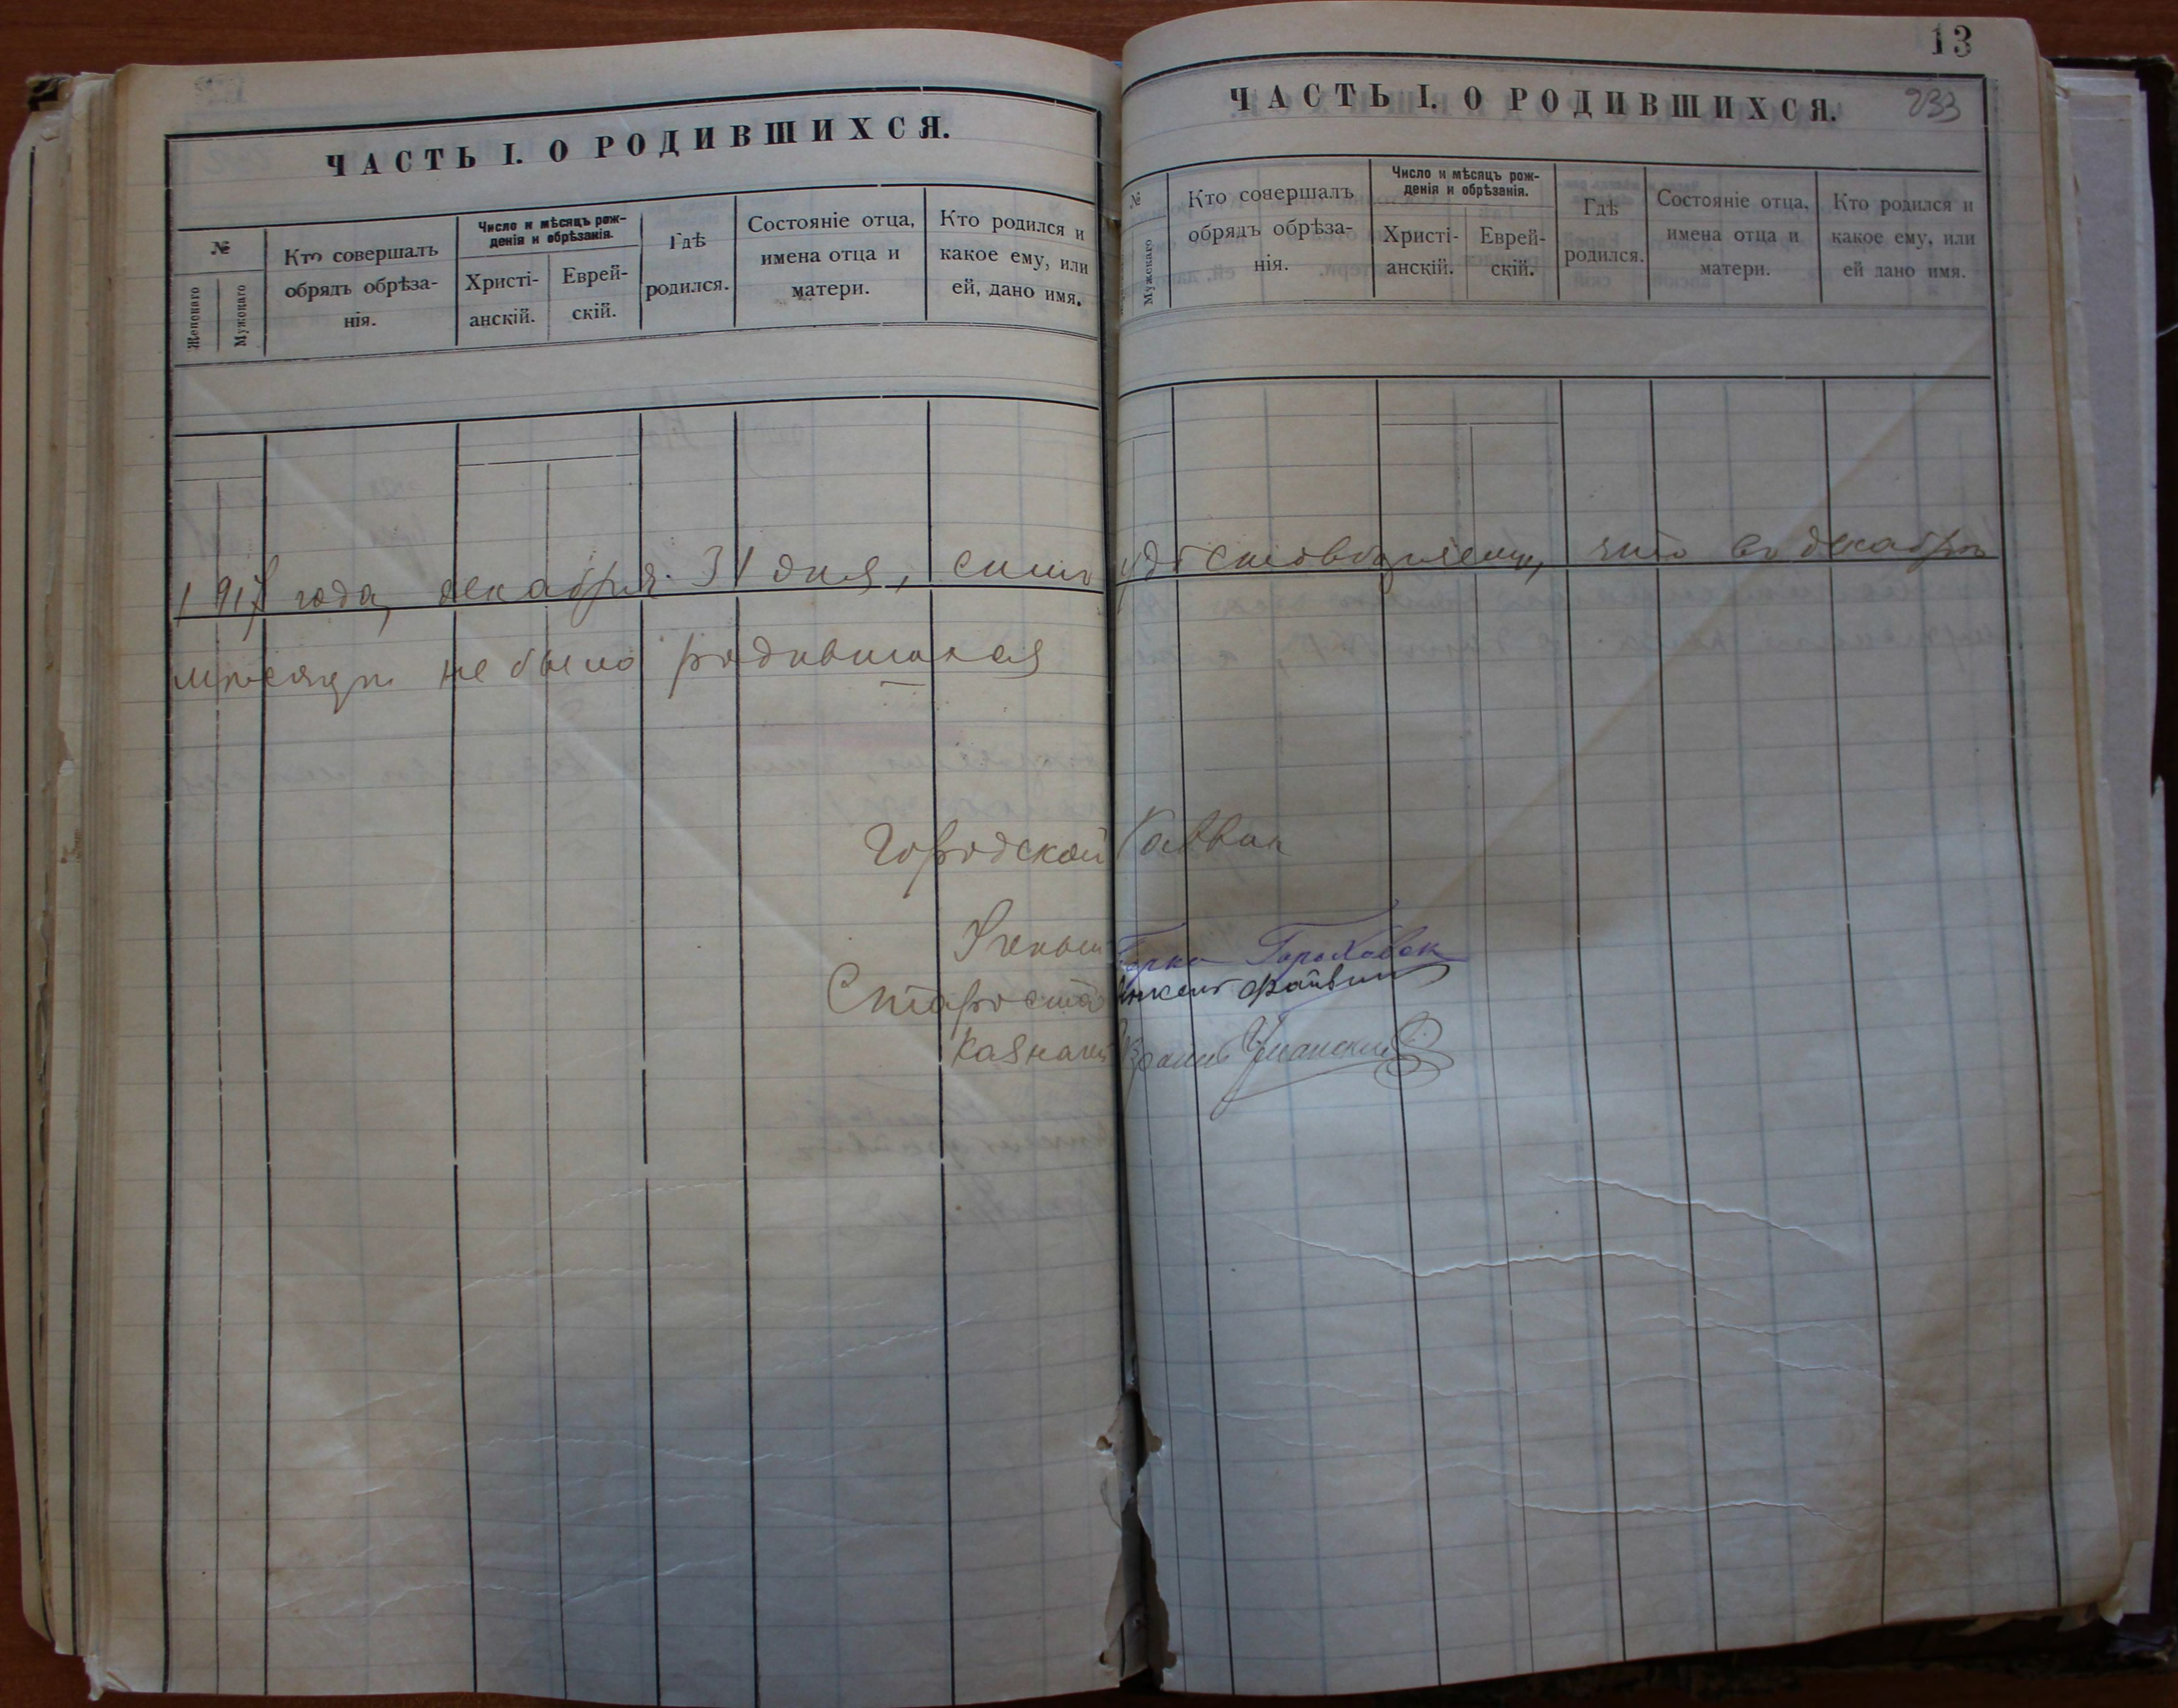 ЧАСТЬ I. О РОДИВШИХСЯ.
№
Женскаго
Мужескаго
Кто совершалъ
обрядъ обрѣза-
нія.
Число и мѣсяцъ рож-
денія и обрѣзанія.
Христі-
анскій.
Еврей-
скій.
Гдѣ
родился.
Состояніе отца,
имена отца и
матери.
Кто родился и
какое ему, или
ей, дано имя.
13
ЧАСТЬ I. О РОДИВШИХСЯ.
233
№
Мужескаго
Кто совершалъ
обрядъ обрѣза-
нія.
Число и мѣсяцъ рож-
денія и обрѣзанія.
Христі-
анскій.
Еврей-
скій.
Гдѣ
родился.
Состояніе отца,
имена отца и
матери.
Кто родился и
какое ему, или
ей дано имя.
1917 года, декабря 31 дня, симъ удостовѣряемъ, что въ декабрѣ
мѣсяцѣ не было родившихся
Городской Раввин
Ученый Гороховск
Староста Файвиш
Казначей Уманский